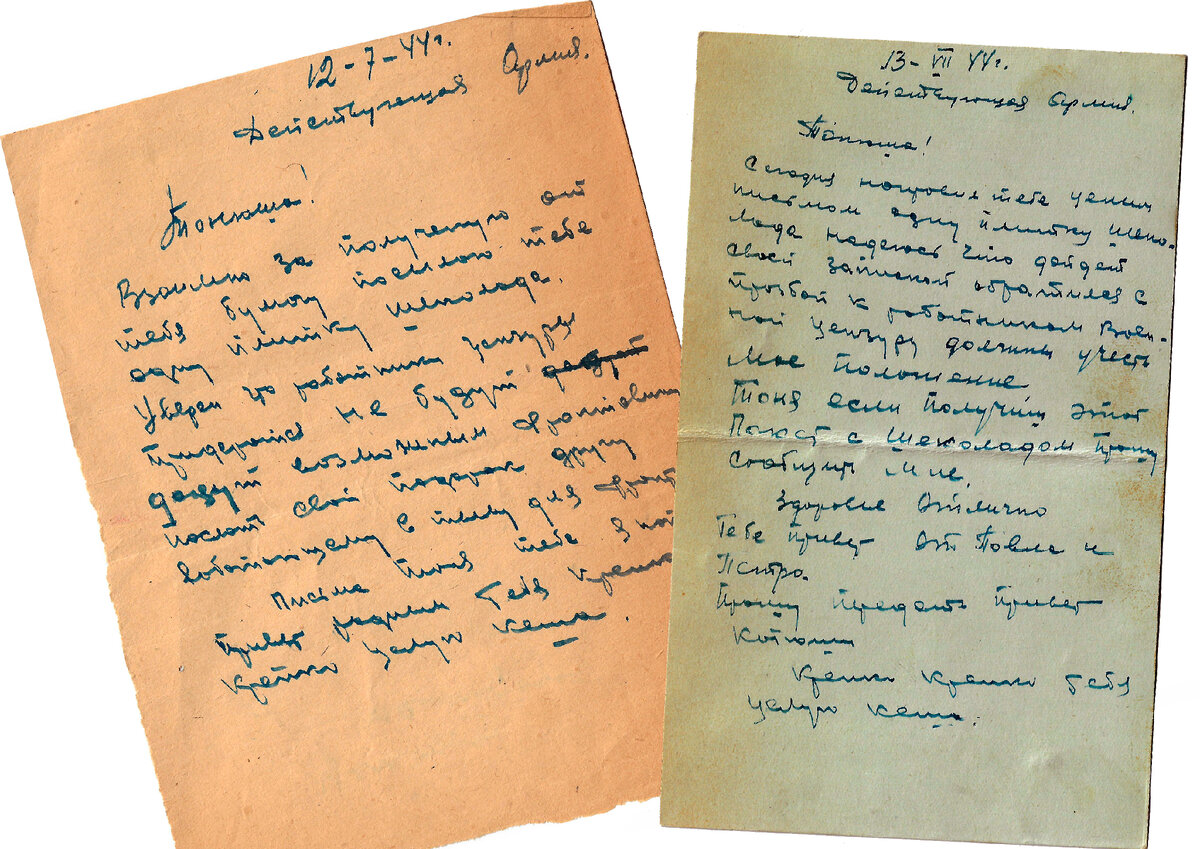 12-7-44г.
Действующая Армия.
Тонюша!
Взаимно за полученую от
тебя бумагу посылаю тебе
одну плитку шеколада.
Уверен что работники цензуры
придератся не будут дадут
дадут возможным фронтовику
послать свой подарок другу
работающему в тылу для фронт
Письма Тоня тебе я
Привет родным тебя крепко
крепко целую Кеша.
13-VII 44г.
Действующая Армия.
Тонюша!
Сегодня направил тебе ценым
письмом одну плитку шеко-
лада надеюсь что дойдет
своей запиской обратился с
прозбой к работником воен-
ной цензуры должны учесть
мое положение
Тоня если получиш этот
Пакет с Шеколадом прошу
сообщит мне.
Здоровье отлично
Тебе привет от Павла и
Петра.
Прошу передать привет
Катюши
Крепко крепко тебя
целую Кеша.